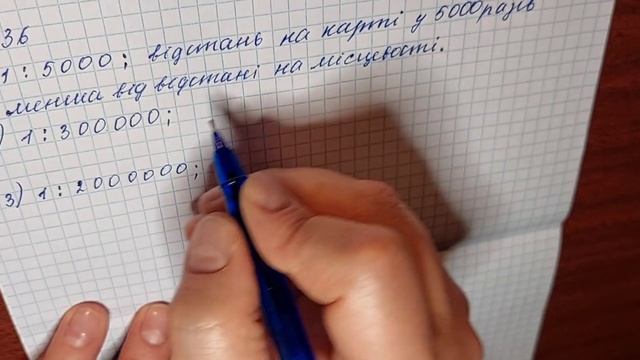 36
1 : 5000 ; відстань на карті у 5000 разів
менша від відстані на місцевості.
) 1 : 300000 ;
3) 1 : 2000000 ;